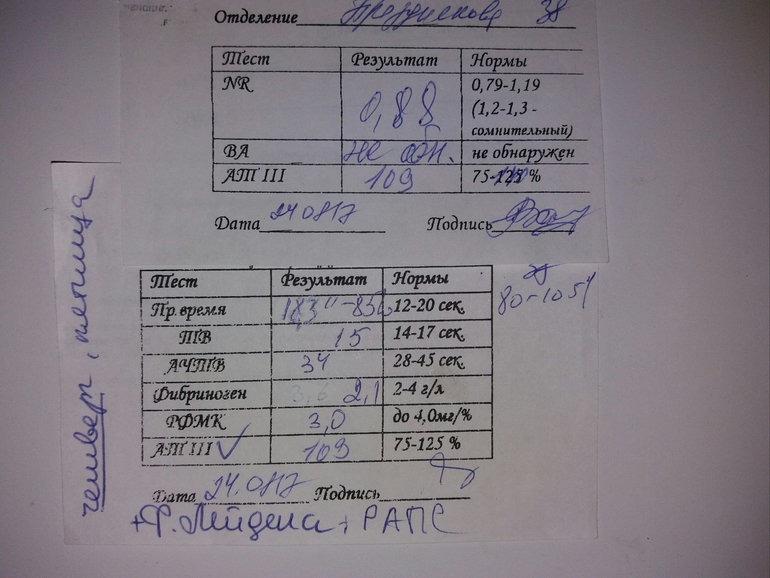 Отделение 38
Тест Результат Нормы
NR 0,88 0,79-1,19
(1,2-1,3 -
сомнительный)
ВА не обн. не обнаружен
АТ III 109 75-125 %
Дата 24 08 17 Подпись
четверг, пятница
Тест Результат Нормы
Пр.время 18,3" - 85% 12-20 сек.
80-105%
ТВ 15 14-17 сек.
АЧТВ 34 28-45 сек.
Фибриноген 3,6 2,1 2-4 г/л
РФМК 3,0 до 4,0мг/%
АТ III 109 75-125 %
Дата 24.08 17 Подпись
+ Ф. Лейдена + РАПС